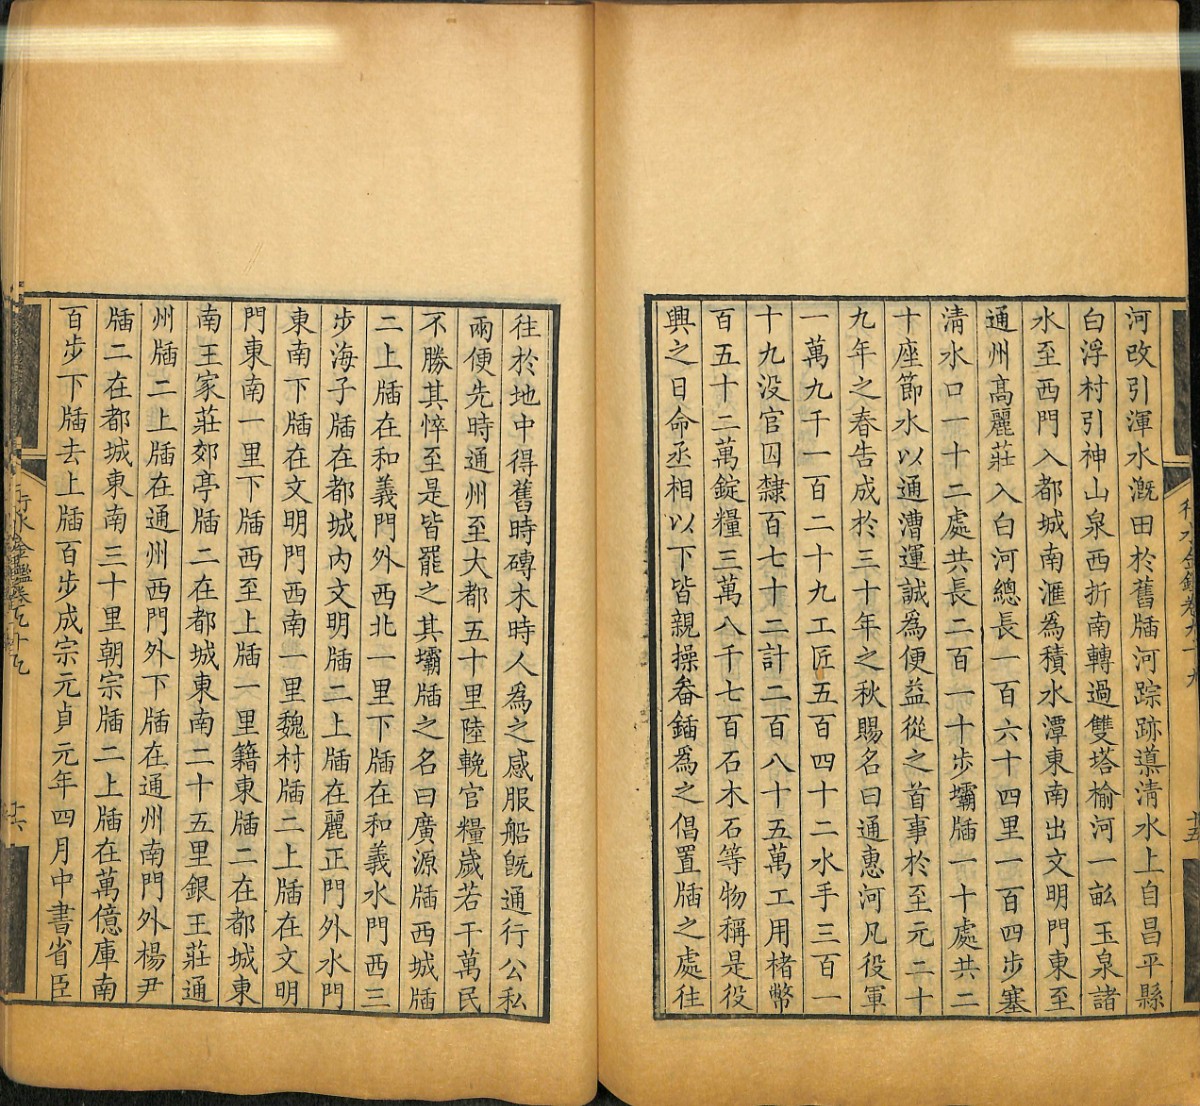 河改引渾水漑田於舊牐河踪跡導淸水上自昌平縣
白浮村引神山泉西折南轉過雙塔榆河一畝玉泉諸
水至西門入都城南滙爲積水潭東南出文明門東至
通州髙麗莊入白河總長一百六十四里一百四步塞
淸水口一十二處共長二百一十步壩牐一十處共二
十座節水以通漕運誠爲便益從之首事於至元二十
九年之春告成於三十年之秋賜名曰通惠河凡役軍
一萬九千一百二十九工匠五百四十二水手三百一
十九没官囚隸百七十二計二百八十五萬工用楮幣
百五十二萬錠糧三萬八千七百石木石等物稱是役
興之日命丞相以下皆親操畚鍤爲之倡置牐之處往
往於地中得舊時磚木時人爲之感服船旣通行公私
兩便先時通州至大都五十里陸輓官糧歲若干萬民
不勝其悴至是皆罷之其壩牐之名曰廣源牐西城牐
二上牐在和義門外西北一里下牐在和義水門西三
步海子牐在都城內文明牐二上牐在麗正門外水門
東南下牐在文明門西南一里魏村牐二上牐在文明
門東南一里下牐西至上牐一里籍東牐二在都城東
南王家莊郊亭牐二在都城東南二十五里銀王莊通
州牐二上牐在通州西門外下牐在通州南門外楊尹
牐二在都城東南三十里朝宗牐二上牐在萬億庫南
百步下牐去上牐百步成宗元貞元年四月中書省臣